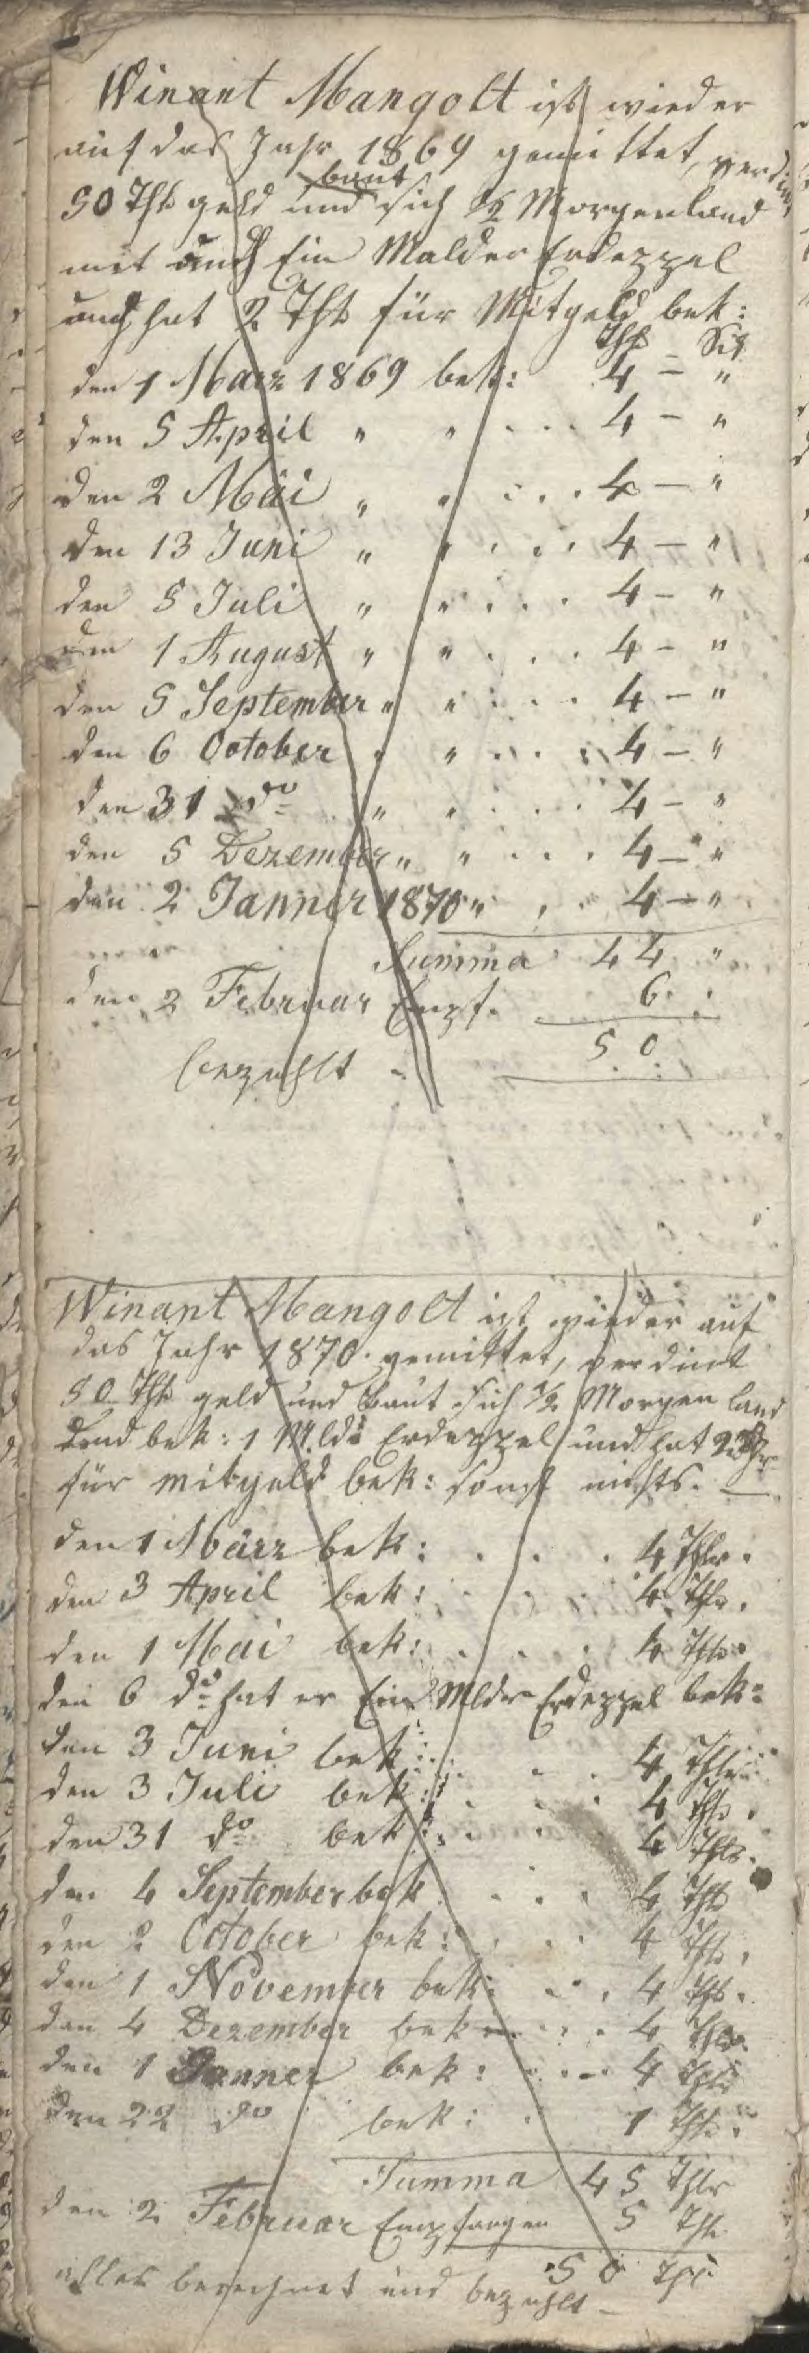 Winant Mangolt ist wieder
auf das Jahr 1869 gemittet, verdint
50 Thlr geld und baut sich 1/2 Morgenland
mit auch Ein Malder Erdeppel
auch hat 2 Thlr für Mitgeld bek:
Thlr Sg
den 1 März 1869 bek: 4 — "
den 5 April " " . . . 4 — "
den 2 Mäi " " . . . 4 — "
den 13 Juni " " . . . 4 — "
den 5 Juli " " . . . 4 — "
den 1 August " " . . . 4 — "
den 5 September " " . . . 4 — "
den 6 October " " . . . 4 — "
den 31 do " " . . . 4 — "
den 5 Dezember " " . . . 4 — "
den 2 Janner 1870 " . . 4 — "
Summa 44 "
den 2 Februar Empf. 6 .
bezahlt - 50
Winant Mangolt ist wieder auf
das Jahr 1870. gemittet, verdint
50 Thlr geld und baut sich 1/2 Morgen land
bek: 1 Mldr Erdeppel und hat 2 Thlr
für mitgeld bek: sonst nichts. —
den 1 März bek: . . . 4 Thlr.
den 3 April bek: . . . 4 Thlr.
den 1 Mai bek: . . . 4 Thlr.
den 6 do hat er Ein Mldr Erdeppel bek:
den 3 Juni bek: . . . 4 Thlr
den 3 Juli bek: . . . 4 Thlr.
den 31 do bek: . . . 4 Thlr.
den 4 September bek . . . 4 Thlr
den 2 October bek: . . . 4 Thlr.
den 1 November bek: . . 4 Thlr.
den 4 Dezember bek . . . 4 Thlr.
den 1 Janner bek: . . . 4 Thlr
den 22 do bek: . 1 Thlr.
Summa 45 Thlr
den 2 Februar Empfangen 5 Thlr
50 Thlr
alles berechnet und bezahlt —